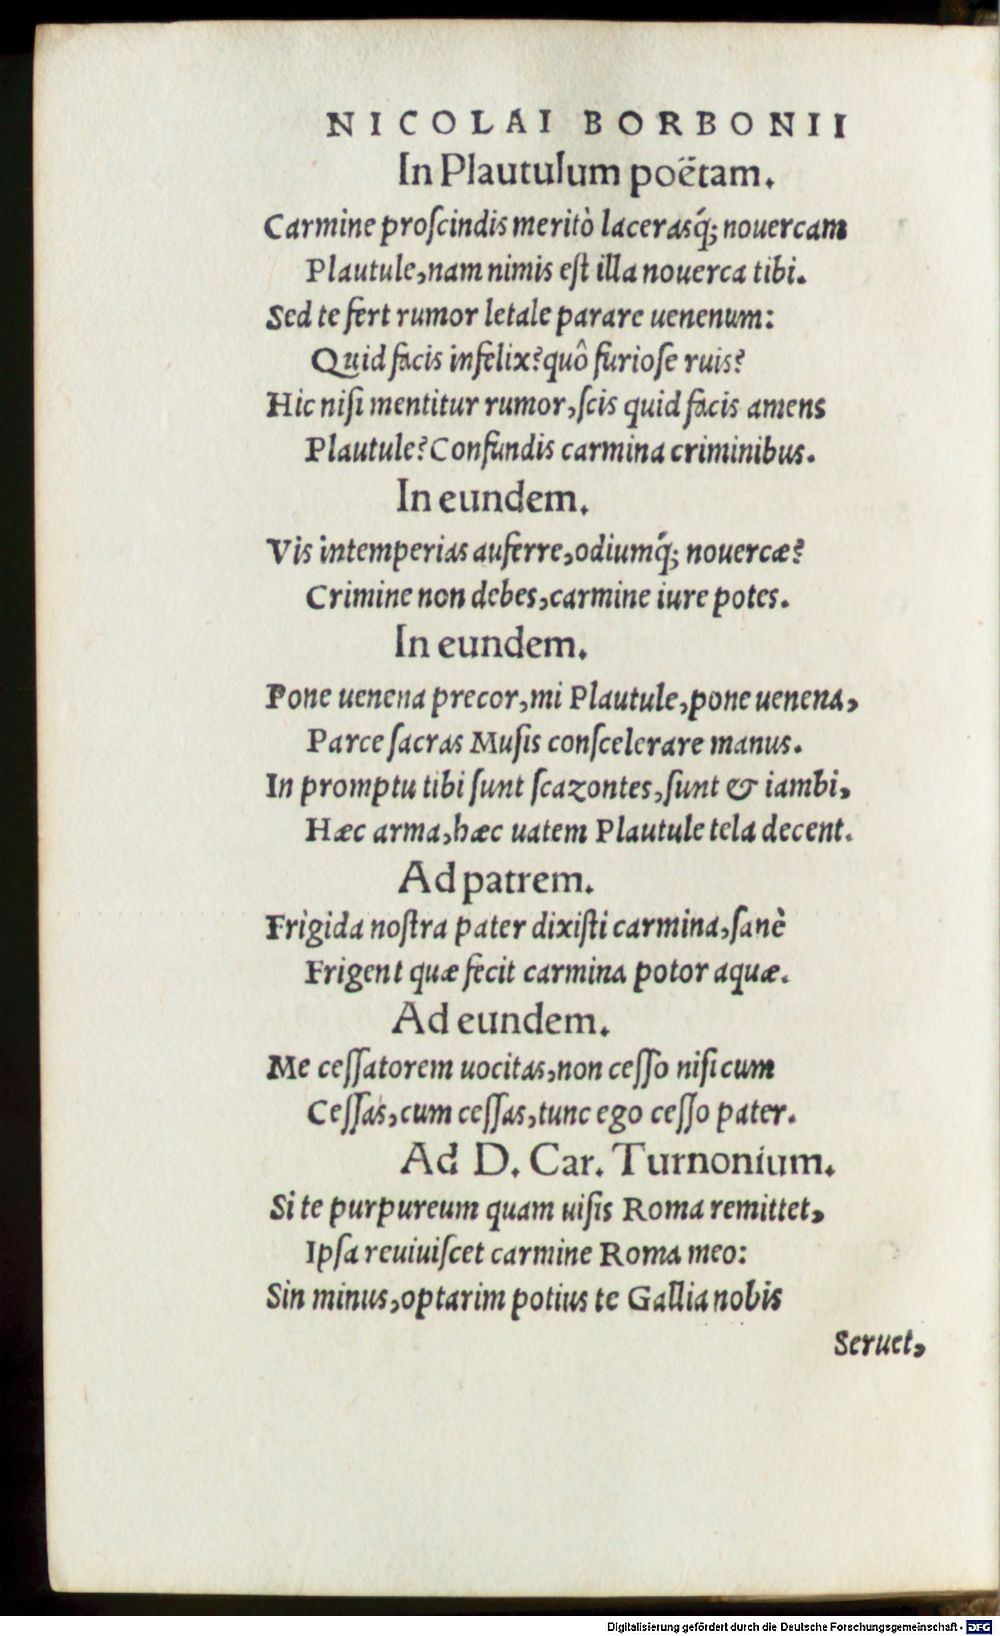 NICOLAI BORBONII
In Plautulum poëtam.
Carmine proſcindis meritò lacerasq́; nouercam
Plautule, nam nimis eſt illa nouerca tibi.
Sed te fert rumor letale parare uenenum:
Quid facis infelix? quô furioſe ruis?
Hic niſi mentitur rumor, ſcis quid facis amens
Plautule? Confundis carmina criminibus.
In eundem.
Vis intemperias auferre, odiumq́; nouercæ?
Crimine non debes, carmine iure potes.
In eundem.
Pone uenena precor, mi Plautule, pone uenena,
Parce ſacras Muſis conſcelerare manus.
In promptu tibi ſunt ſcazontes, ſunt & iambi,
Hæc arma, hæc uatem Plautule tela decent.
Ad patrem.
Frigida noſtra pater dixiſti carmina, ſanè
Frigent quæ fecit carmina potor aquæ.
Ad eundem.
Me ceſſatorem uocitas, non ceſſo niſi cum
Ceſſas, cum ceſſas, tunc ego ceſſo pater.
Ad D. Car. Turnonium.
Si te purpureum quam uiſis Roma remittet,
Ipſa reuiuiſcet carmine Roma meo:
Sin minus, optarim potius te Gallia nobis
Seruet,
Digitalisierung gefördert durch die Deutsche Forschungsgemeinschaft - DFG